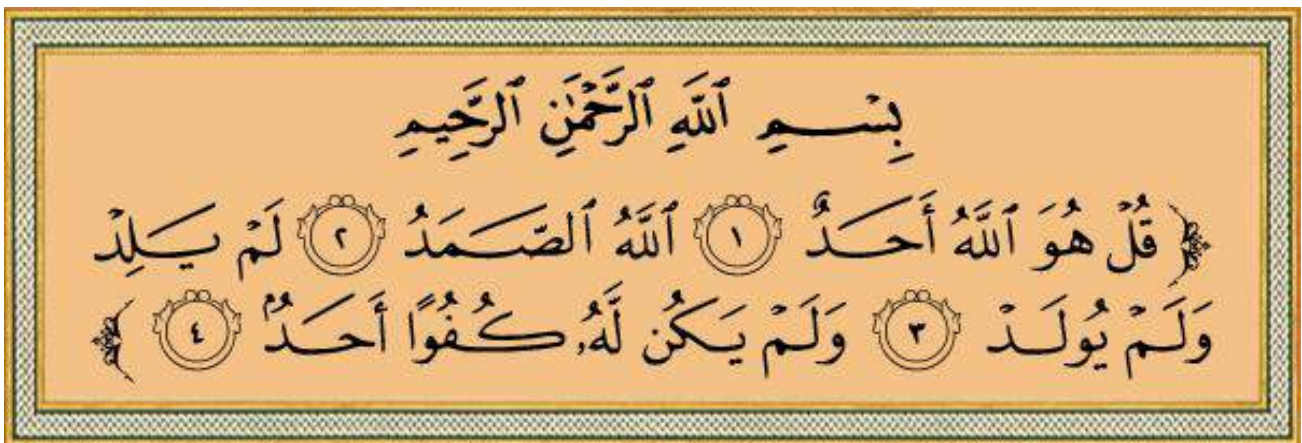 بِسْمِ ٱللَّهِ ٱلرَّحْمَٰنِ ٱلرَّحِيمِ
﴿ قُلْ هُوَ ٱللَّهُ أَحَدٌ ١ ٱللَّهُ ٱلصَّمَدُ ٢ لَمْ يَلِدْ
وَلَمْ يُولَدْ ٣ وَلَمْ يَكُن لَّهُۥ كُفُوًا أَحَدٌۢ ٤ ﴾